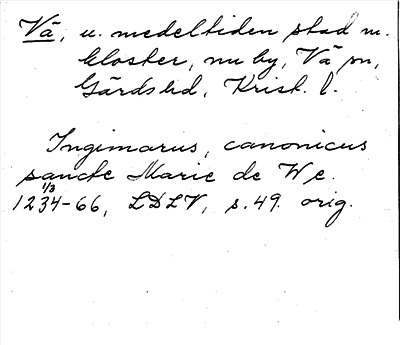 Vä, u. medeltiden stad m.
kloster, nu by, Vä sn,
Gärds hd, Krist. l.
Ingimarus, canonicus
sancte Marie de We.
1/3
1234-66, LDLV, s. 49. orig.